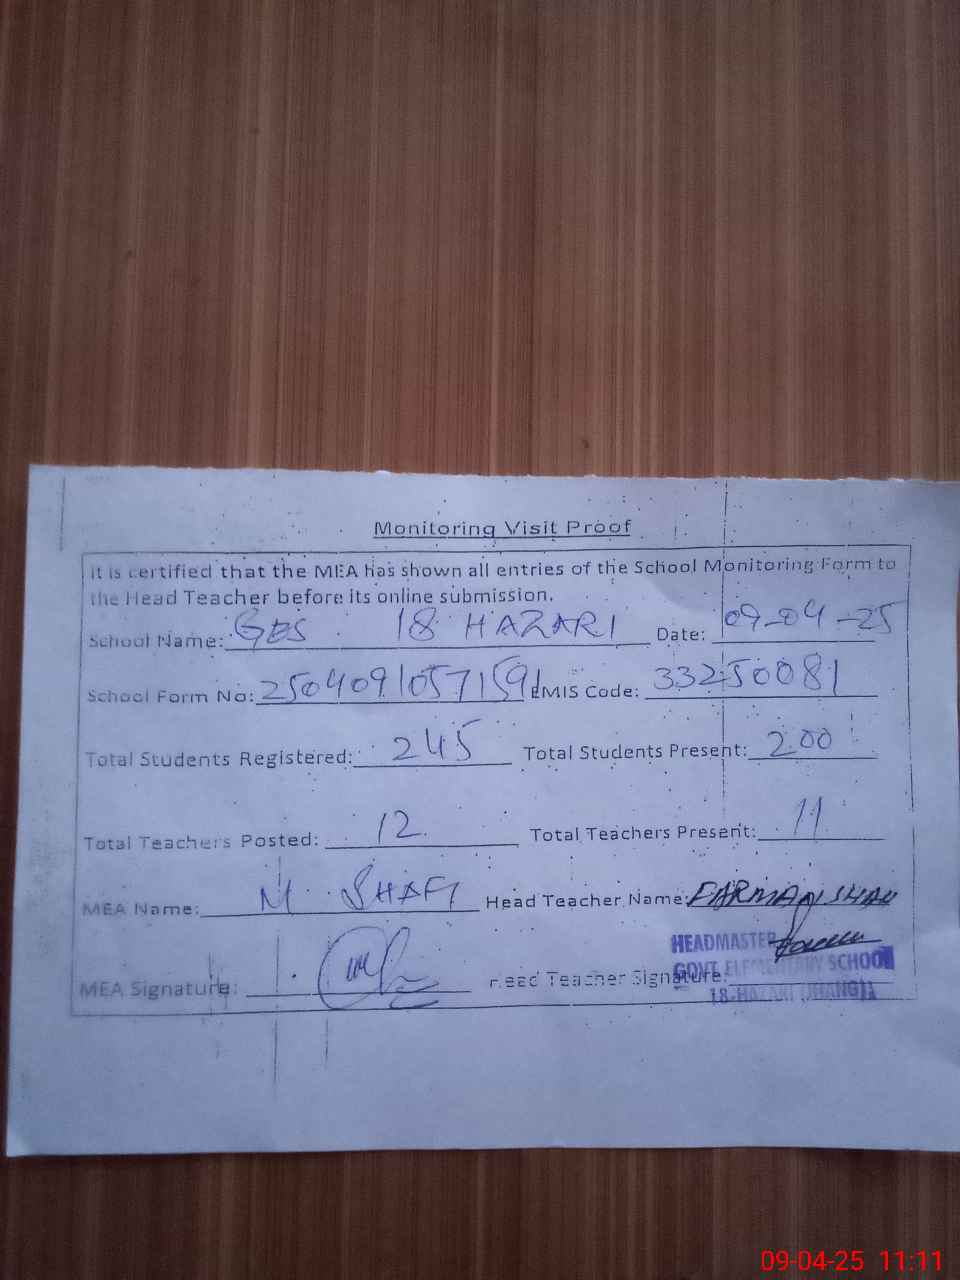 Monitoring Visit Proof
It is certified that the MEA has shown all entries of the School Monitoring Form to
the Head Teacher before its online submission.
School Name: GES 18 HAZARI Date: 09-04-25
School Form No: 25040910571591 EMIS Code: 33250081
Total Students Registered: 245 Total Students Present: 200
Total Teachers Posted: 12 Total Teachers Present: 11
MEA Name: M SHAFI Head Teacher Name: FARMAN SHAH
HEADMASTER
MEA Signature: Head Teacher Signature:
GOVT. ELEMENTARY SCHOOL
18-HAZARI (JHANG)
09-04-25 11:11